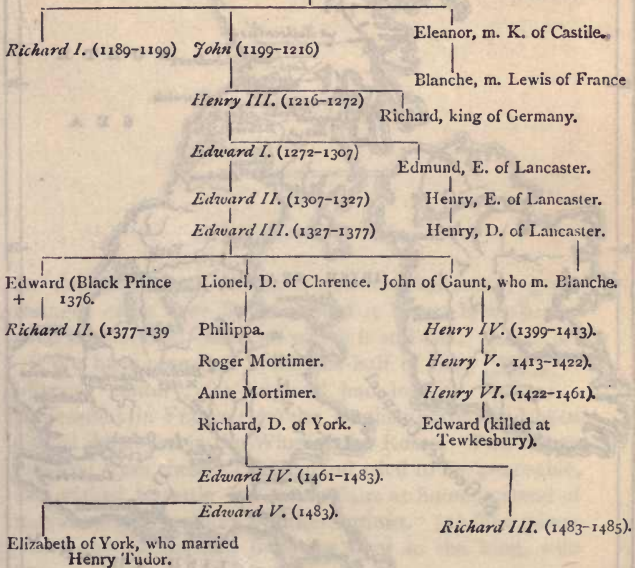 Richard I. (1189-1199) John (1199-1216) Eleanor, m. K. of Castile.
Blanche, m. Lewis of France
Henry III. (1216-1272)
Richard, king of Germany.
Edward I. (1272-1307)
Edmund, E. of Lancaster.
Edward II. (1307-1327) Henry, E. of Lancaster.
Edward III. (1327-1377) Henry, D. of Lancaster.
Edward (Black Prince Lionel, D. of Clarence. John of Gaunt, who m. Blanche.
+ 1376.
Richard II. (1377-139 Philippa. Henry IV. (1399-1413).
Roger Mortimer. Henry V. 1413-1422).
Anne Mortimer. Henry VI. (1422-1461).
Richard, D. of York. Edward (killed at
Tewkesbury).
Edward IV. (1461-1483).
Edward V. (1483).
Richard III. (1483-1485).
Elizabeth of York, who married
Henry Tudor.